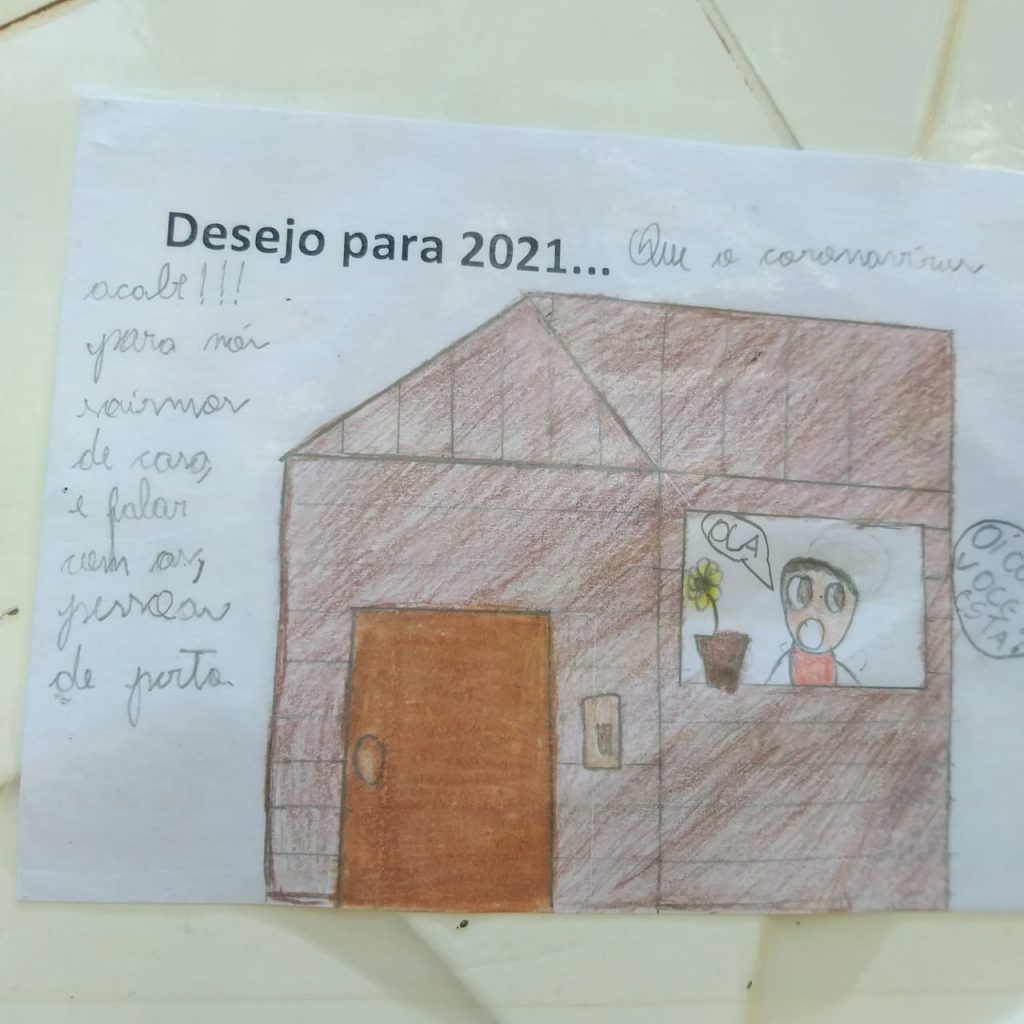 Desejo para 2021... Que o coronavírus
acabe!!!
para nós
sairmos
de casa,
e falar
com as,
pessoas
de perto.
OLA
OI CO
VOCE
ESTA?